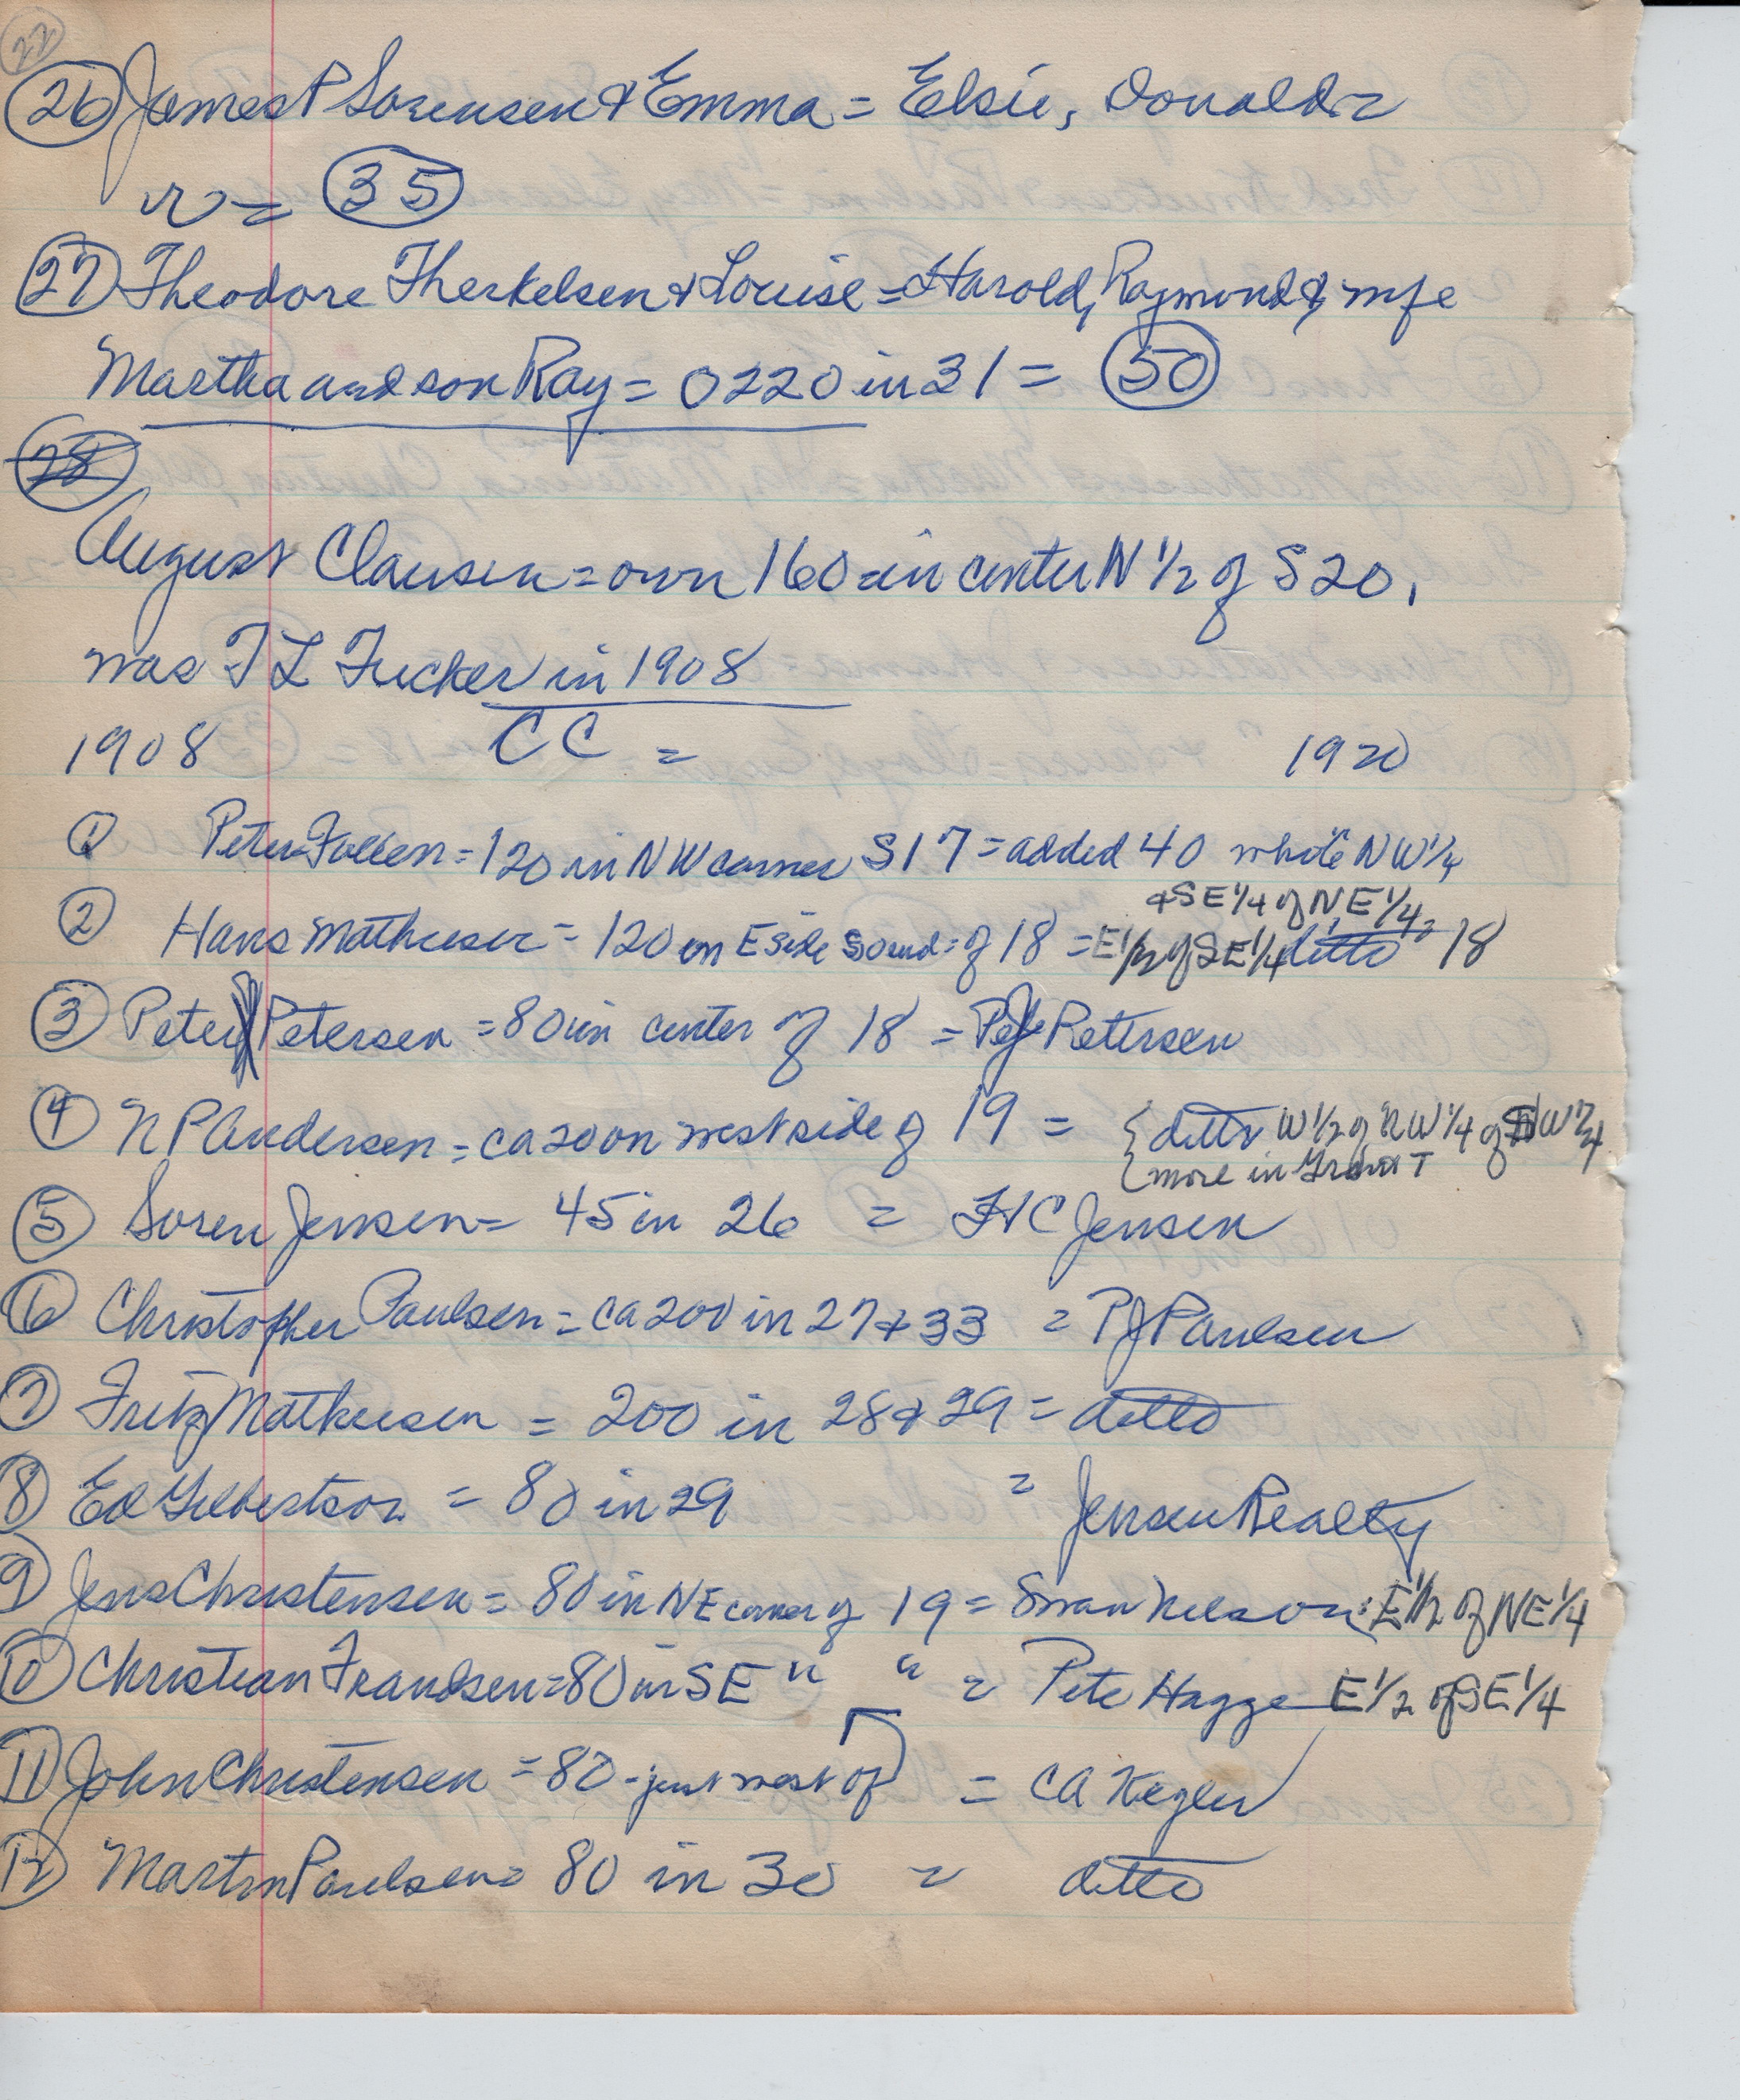 22
26 James P Sorensen & Emma = Elsie, Donald =
r = 35
27 Theodore Therkelsen & Louise = Harold, Raymond & wife
Martha and son Ray = O 220 in 31 = 50
28
August Clausen = own 160 in center N 1/2 of S 20,
was T L Tucker in 1908
1908 CC = 1920
1 Peter Follen = 120 in NW corner S 17 = added 40 whole NW 1/4
& SE 1/4 of NE 1/4,
2 Hans Mathiesen = 120 on E side So end of 18 = E 1/2 of SE 1/4 ditto 18
3 Peter Petersen = 80 in center of 18 = Petersen
4 N P Andersen = ca 20 on west side of 19 = { ditto W 1/2 of NW 1/4 of W 1/4
{ more in Grant T
5 Soren Jensen = 45 in 26 = H C Jensen
6 Christopher Paulsen = ca 200 in 27 & 33 = P J Paulsen
7 Fritz Mathiesen = 200 in 28 & 29 = ditto
8 Ed Gilbertson = 80 in 29 = Jensen Realty
9 Jens Christensen = 80 in NE corner of 19 = Swan Nelson: E 1/2 of NE 1/4
10 Christian Frandsen = 80 in SE " " = Pete Hagge E 1/2 of SE 1/4
11 John Christensen = 80 - just west of = CA Kegler
12 Martin Paulsen = 80 in 30 = ditto